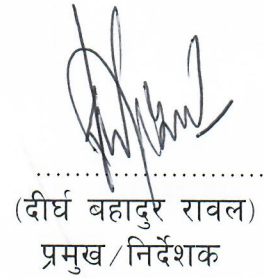 ................................
(दीर्घ बहादुर रावल)
प्रमुख/निर्देशक